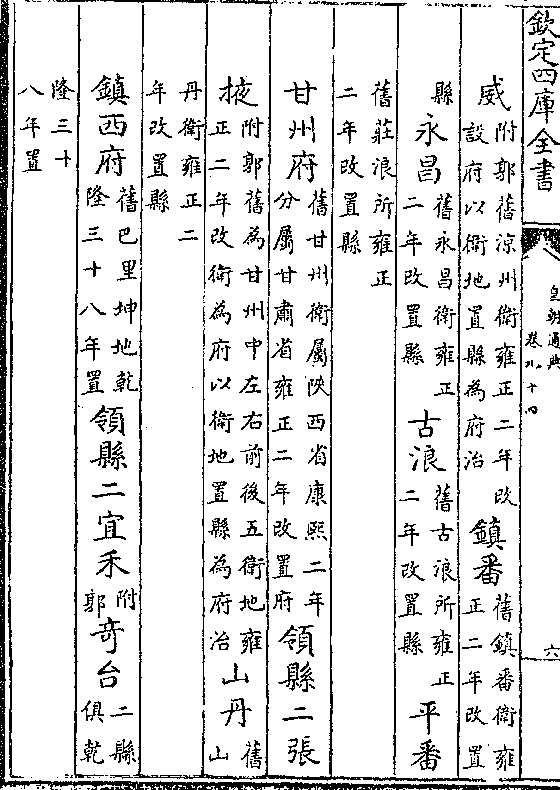 欽定四庫全書
皇朝通典
卷九十四
六
威附郭舊涼州衛雍正二年改設府以衛地置縣為府治鎮番舊鎮番衛雍正二年改置
縣永昌舊永昌衛雍正二年改置縣古浪舊古浪所雍正二年改置縣平番
舊莊浪所雍正二年改置縣
甘州府舊甘州衛屬陜西省康熙二年分屬甘肅省雍正二年改置府領縣二張
掖附郭舊為甘州中左右前後五衛地雍正二年改衛為府以衛地置縣為府治山丹舊山
丹衛雍正二年改置縣
鎮西府舊巴里坤地乾隆三十八年置領縣二宜禾附郭奇台二縣俱乾
隆三十八年置